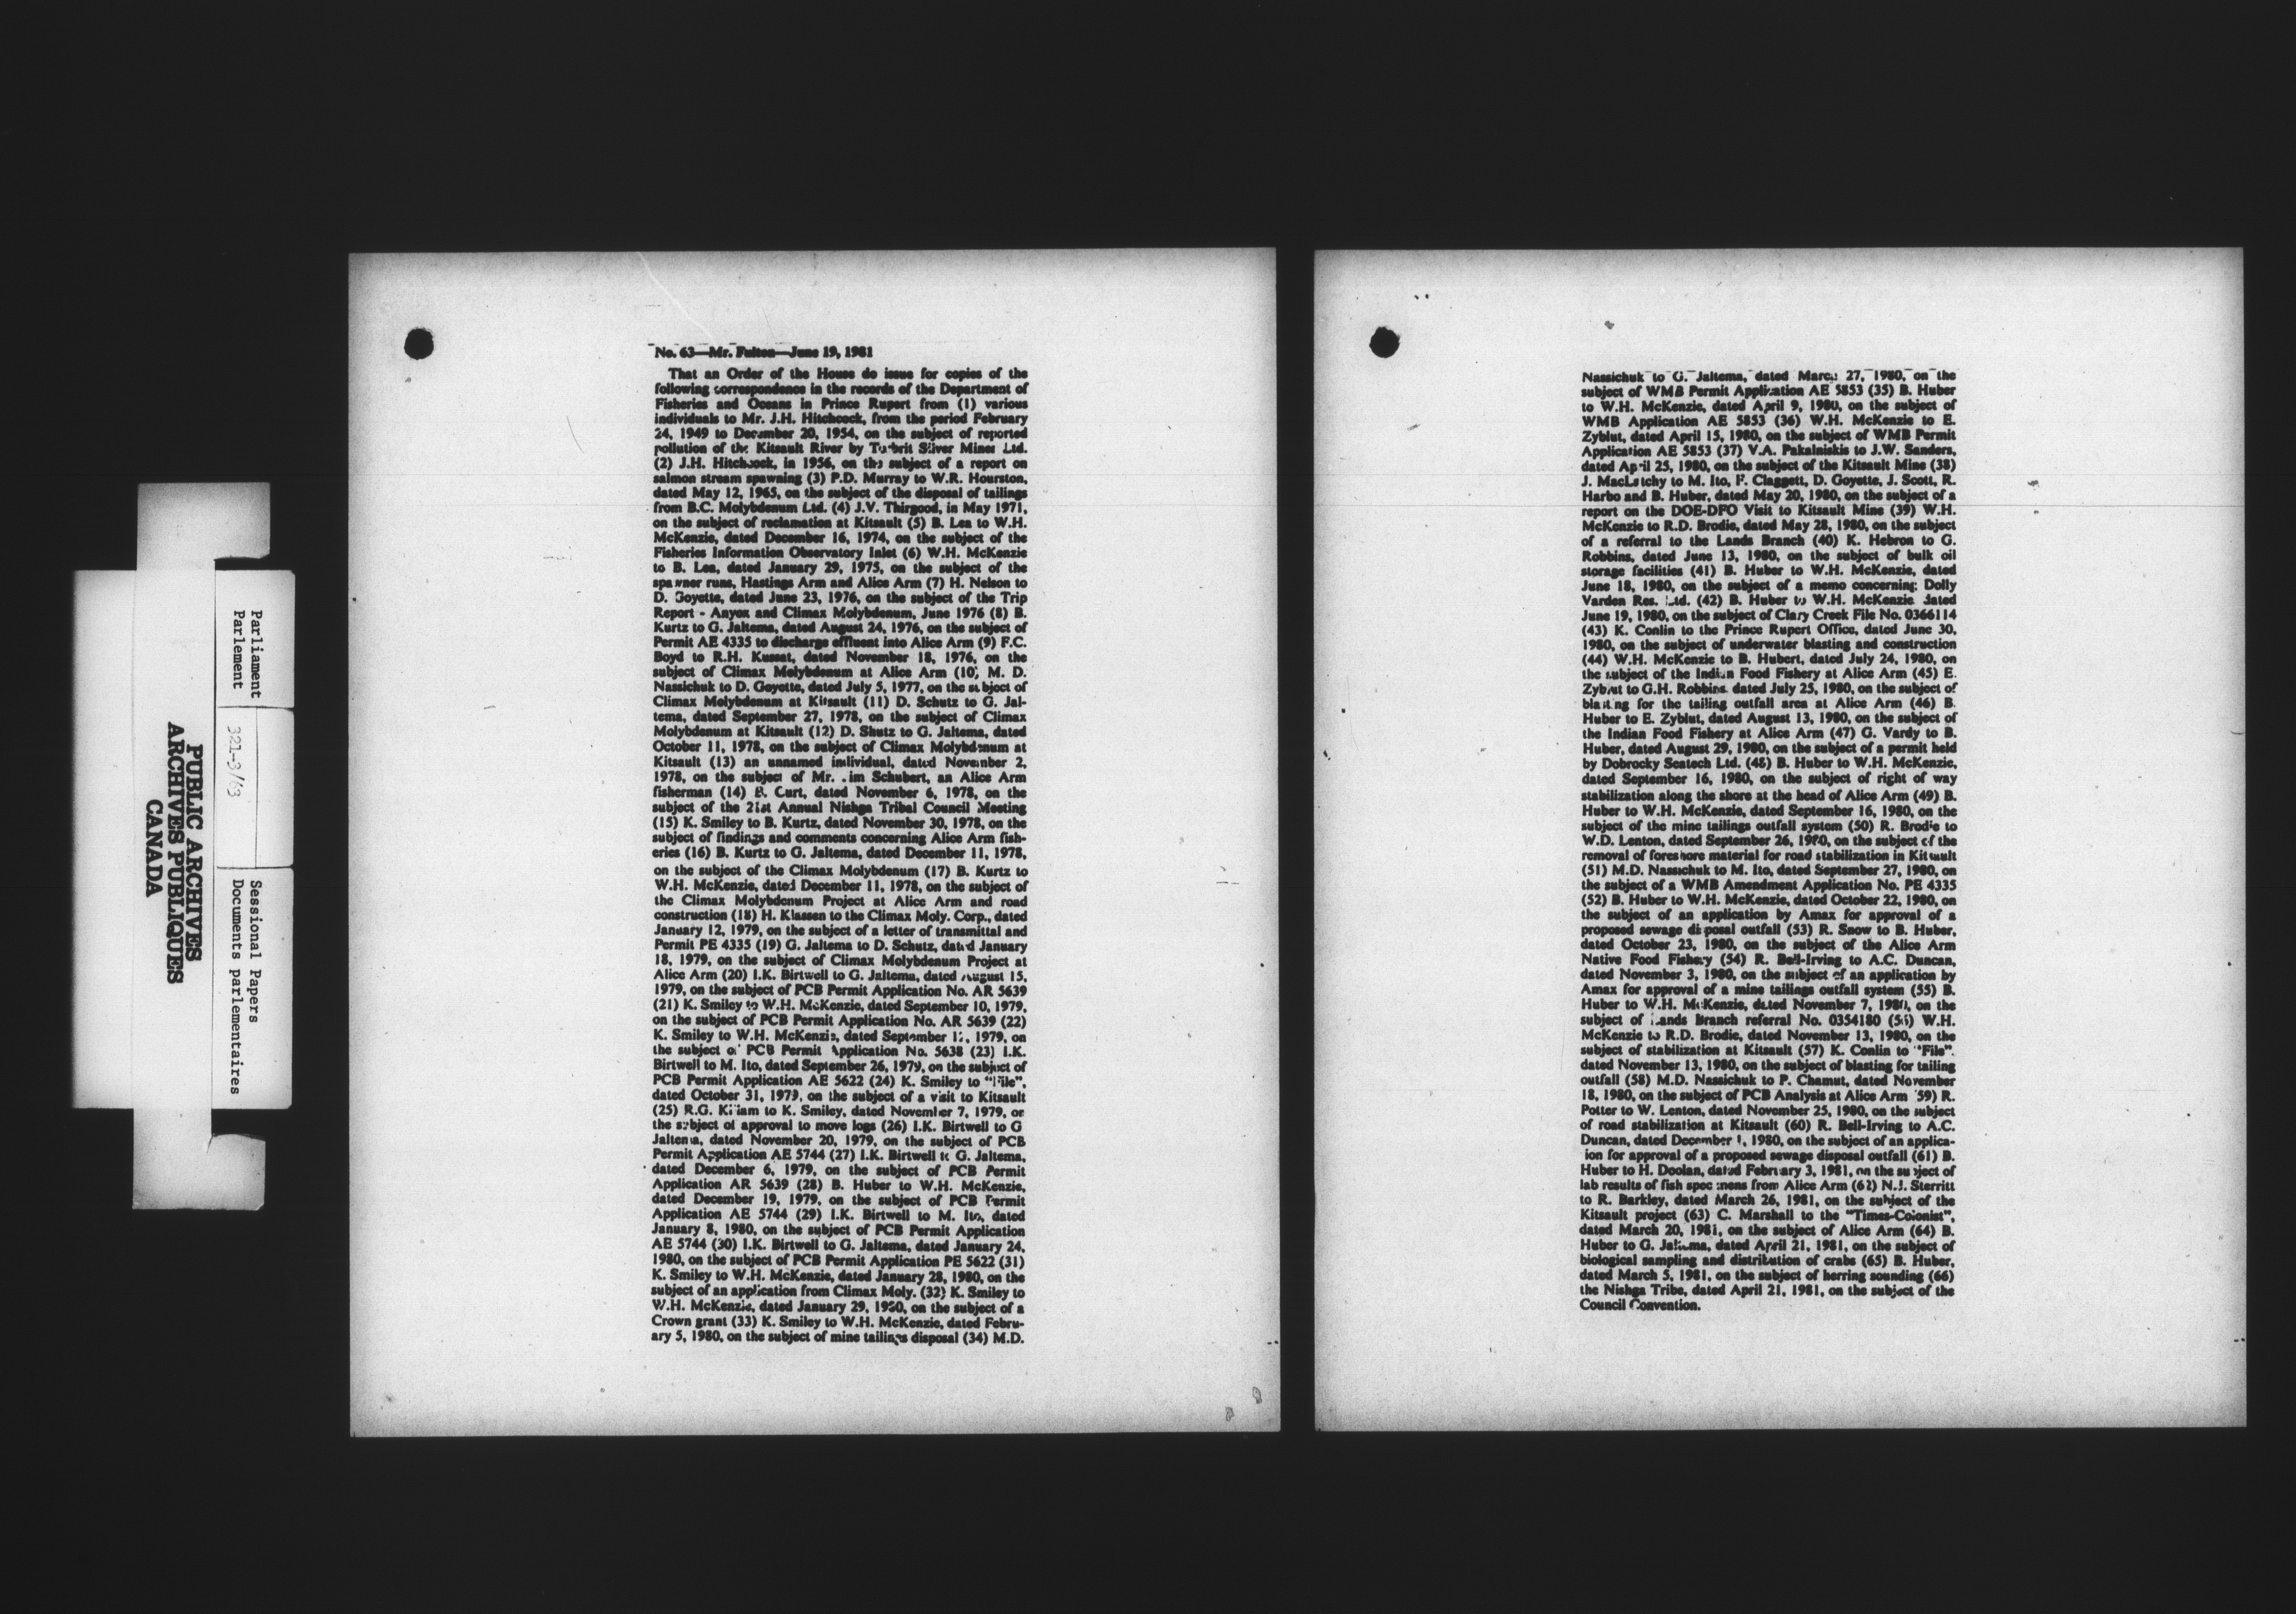 Parliament
Parlement
321-3/63
Sessional Papers
Documents parlementaires
PUBLIC ARCHIVES
ARCHIVES PUBLIQUES
CANADA
No. 63—Mr. Fulton—June 19, 1981
That an Order of the House do issue for copies of the
following correspondence in the records of the Department of
Fisheries and Oceans in Prince Rupert from (1) various
individuals to Mr. J.H. Hitchcock, from the period February
24, 1949 to December 20, 1954, on the subject of reported
pollution of the Kitsault River by Torbrit Silver Mines Ltd.
(2) J.H. Hitchcock, in 1956, on the subject of a report on
salmon stream spawning (3) P.D. Murray to W.R. Hourston,
dated May 12, 1965, on the subject of the disposal of tailings
from B.C. Molybdenum Ltd. (4) J.V. Thirgood, in May 1971,
on the subject of reclamation at Kitsault (5) B. Lea to W.H.
McKenzie, dated December 16, 1974, on the subject of the
Fisheries Information Observatory Inlet (6) W.H. McKenzie
to B. Lea, dated January 29, 1975, on the subject of the
spawner runs, Hastings Arm and Alice Arm (7) H. Nelson to
D. Goyette, dated June 23, 1976, on the subject of the Trip
Report - Anyox and Climax Molybdenum, June 1976 (8) B.
Kurtz to G. Jaltema, dated August 24, 1976, on the subject of
Permit AE 4335 to discharge effluent into Alice Arm (9) F.C.
Boyd to R.H. Kussat, dated November 18, 1976, on the
subject of Climax Molybdenum at Alice Arm (10) M. D.
Nassichuk to D. Goyette, dated July 5, 1977, on the subject of
Climax Molybdenum at Kitsault (11) D. Schutz to G. Jal-
tema, dated September 27, 1978, on the subject of Climax
Molybdenum at Kitsault (12) D. Shutz to G. Jaltema, dated
October 11, 1978, on the subject of Climax Molybdenum at
Kitsault (13) an unnamed individual, dated November 2,
1978, on the subject of Mr. Schubert, an Alice Arm
fisherman (14) B. Curt, dated November 6, 1978, on the
subject of the 21st Annual Nishga Tribal Council Meeting
(15) K. Smiley to B. Kurtz, dated November 30, 1978, on the
subject of findings and comments concerning Alice Arm fish-
eries (16) B. Kurtz to G. Jaltema, dated December 11, 1978,
on the subject of the Climax Molybdenum (17) B. Kurtz to
W.H. McKenzie, dated December 11, 1978, on the subject of
the Climax Molybdenum Project at Alice Arm and road
construction (18) H. Klassen to the Climax Moly. Corp., dated
January 12, 1979, on the subject of a letter of transmittal and
Permit PE 4335 (19) G. Jaltema to D. Schutz, dated January
18, 1979, on the subject of Climax Molybdenum Project at
Alice Arm (20) I.K. Birtwell to G. Jaltema, dated August 15,
1979, on the subject of PCB Permit Application No. AR 5639
(21) K. Smiley to W.H. McKenzie, dated September 10, 1979,
on the subject of PCB Permit Application No. AR 5639 (22)
K. Smiley to W.H. McKenzie, dated September 12, 1979, on
the subject of PCB Permit Application No. 5638 (23) I.K.
Birtwell to M. Ito, dated September 26, 1979, on the subject of
PCB Permit Application AE 5622 (24) K. Smiley to "File",
dated October 31, 1979, on the subject of a visit to Kitsault
(25) R.G. Killam to K. Smiley, dated November 7, 1979, on
the subject of approval to move logs (26) I.K. Birtwell to G
Jaltema, dated November 20, 1979, on the subject of PCB
Permit Application AE 5744 (27) I.K. Birtwell to G. Jaltema,
dated December 6, 1979, on the subject of PCB Permit
Application AR 5639 (28) B. Huber to W.H. McKenzie,
dated December 19, 1979, on the subject of PCB Permit
Application AE 5744 (29) I.K. Birtwell to M. Ito, dated
January 8, 1980, on the subject of PCB Permit Application
AE 5744 (30) I.K. Birtwell to G. Jaltema, dated January 24,
1980, on the subject of PCB Permit Application PE 5622 (31)
K. Smiley to W.H. McKenzie, dated January 28, 1980, on the
subject of an application from Climax Moly. (32) K. Smiley to
W.H. McKenzie, dated January 29, 1980, on the subject of a
Crown grant (33) K. Smiley to W.H. McKenzie, dated Febru-
ary 5, 1980, on the subject of mine tailings disposal (34) M.D.
Nassichuk to G. Jaltema, dated March 27, 1980, on the
subject of WMB Permit Application AE 5853 (35) B. Huber
to W.H. McKenzie, dated April 9, 1980, on the subject of
WMB Application AE 5853 (36) W.H. McKenzie to E.
Zyblut, dated April 15, 1980, on the subject of WMB Permit
Application AE 5853 (37) V.A. Pakalniskis to J.W. Sanders,
dated April 25, 1980, on the subject of the Kitsault Mine (38)
J. MacLatchy to M. Ito, F. Claggett, D. Goyette, J. Scott, R.
Harbo and B. Huber, dated May 20, 1980, on the subject of a
report on the DOE-DFO Visit to Kitsault Mine (39) W.H.
McKenzie to R.D. Brodie, dated May 28, 1980, on the subject
of a referral to the Lands Branch (40) K. Hebron to G.
Robbins, dated June 13, 1980, on the subject of bulk oil
storage facilities (41) B. Huber to W.H. McKenzie, dated
June 18, 1980, on the subject of a memo concerning Dolly
Varden Res. Ltd. (42) B. Huber to W.H. McKenzie dated
June 19, 1980, on the subject of Clary Creek File No. 0366114
(43) K. Conlin to the Prince Rupert Office, dated June 30,
1980, on the subject of underwater blasting and construction
(44) W.H. McKenzie to B. Hubert, dated July 24, 1980, on
the subject of the Indian Food Fishery at Alice Arm (45) E.
Zyblut to G.H. Robbins dated July 25, 1980, on the subject of
blasting for the tailing outfall area at Alice Arm (46) B.
Huber to E. Zyblut, dated August 13, 1980, on the subject of
the Indian Food Fishery at Alice Arm (47) G. Vardy to B.
Huber, dated August 29, 1980, on the subject of a permit held
by Dobrocky Seatech Ltd. (48) B. Huber to W.H. McKenzie,
dated September 16, 1980, on the subject of right of way
stabilization along the shore at the head of Alice Arm (49) B.
Huber to W.H. McKenzie, dated September 16, 1980, on the
subject of the mine tailings outfall system (50) R. Brodie to
W.D. Lenton, dated September 26, 1980, on the subject of the
removal of foreshore material for road stabilization in Kitsault
(51) M.D. Nassichuk to M. Ito, dated September 27, 1980, on
the subject of a WMB Amendment Application No. PE 4335
(52) B. Huber to W.H. McKenzie, dated October 22, 1980, on
the subject of an application by Amax for approval of a
proposed sewage disposal outfall (53) R. Snow to B. Huber,
dated October 23, 1980, on the subject of the Alice Arm
Native Food Fishery (54) R. Bell-Irving to A.C. Duncan,
dated November 3, 1980, on the subject of an application by
Amax for approval of a mine tailings outfall system (55) B.
Huber to W.H. McKenzie, dated November 7, 1980, on the
subject of Lands Branch referral No. 0354180 (56) W.H.
McKenzie to R.D. Brodie, dated November 13, 1980, on the
subject of stabilization at Kitsault (57) K. Conlin to "File".
dated November 13, 1980, on the subject of blasting for tailing
outfall (58) M.D. Nassichuk to P. Chamut, dated November
18, 1980, on the subject of PCB Analysis at Alice Arm (59) R.
Potter to W. Lenton, dated November 25, 1980, on the subject
of road stabilization at Kitsault (60) R. Bell-Irving to A.C.
Duncan, dated December 1, 1980, on the subject of an applica-
tion for approval of a proposed sewage disposal outfall (61) B.
Huber to H. Doolan, dated February 3, 1981, on the subject of
lab results of fish specimens from Alice Arm (62) N.J. Sterritt
to R. Barkley, dated March 26, 1981, on the subject of the
Kitsault project (63) C. Marshall to the "Times-Colonist",
dated March 20, 1981, on the subject of Alice Arm (64) B.
Huber to G. Jaltema, dated April 21, 1981, on the subject of
biological sampling and distribution of crabs (65) B. Huber,
dated March 5, 1981, on the subject of herring sounding (66)
the Nishga Tribe, dated April 21, 1981, on the subject of the
Council Convention.